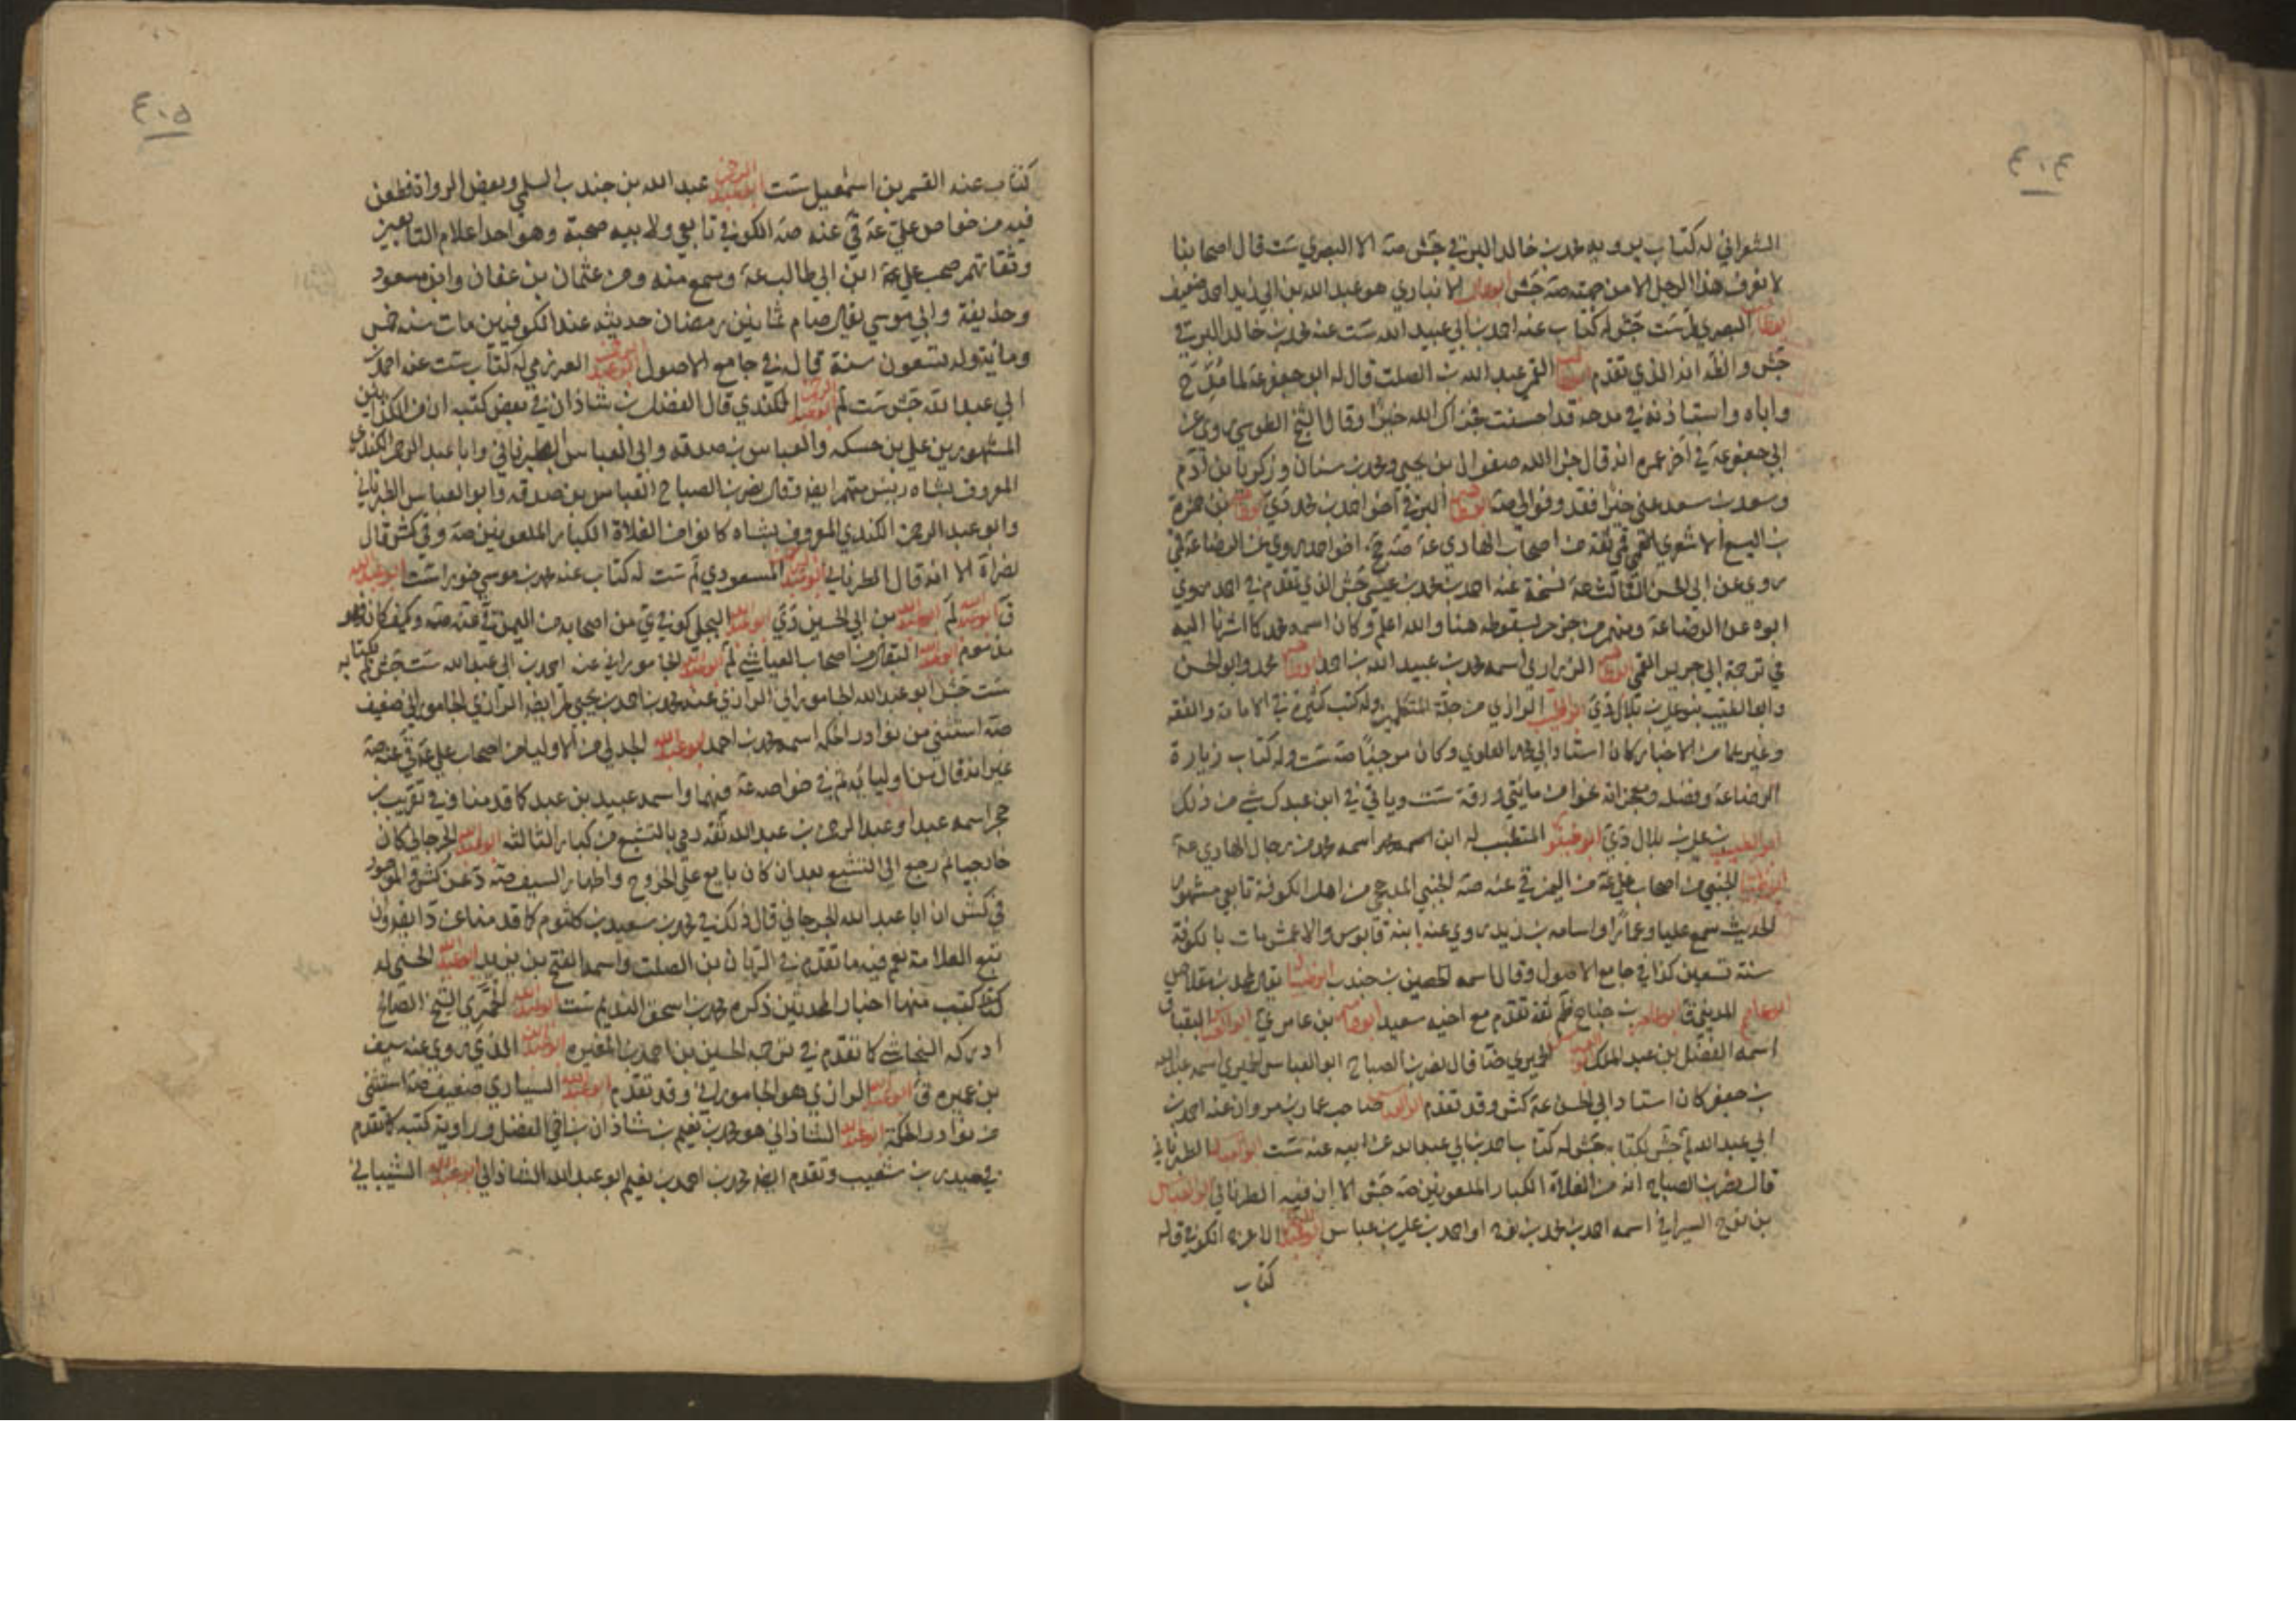 ٤٠٤
الشعراني له كتاب يرويه محمد بن خالد البرقي جش صه الا البصري ست قال اصحابنا
لا نعرف هذا الرجل الا من جهته صه جش ابو طالب الانباري هو عبد الله بن ابي زيد احمد ضعيف
ابو طالب البصري لم ست جش له كتاب عنه احمد بن ابي عبد الله ست عنه محمد بن خالد البرقي
جش واظنه انه الذي تقدم ابو طالب القمي عبد الله بن الصلت قال له ابو جعفر عة لما مدح
واباه واستاذنه في مدحه قد احسنت فجزاك الله خيرا وقال الشيخ الطوسي روى عن
ابي جعفر عة في آخر عمره انه قال جزا الله صفوان بن يحيى ومحمد بن سنان وزكريا بن آدم
وسعد بن سعد عني خيرا فقد وفوا لي صه ابو طاهر البرقي اخو احمد بن محمد دي ابو طاهر بن حمزة
بن اليسع الاشعري القمي ثقة من اصحاب الهادي عة صه اخو احمد روى عن الرضا عة
روى عن ابي الحسن الثالث عة نسخة عنه احمد بن محمد بن عيسى جش الذي تقدم في احمد روى
ابوه عن الرضا عة هنا والله اعلم وكان اسمه محمد كما اشرنا اليه
في ترجمة ابي جرير القمي ابو طاهر الزراري اسمه محمد بن عبيد الله بن احمد ابو طاهر محمد وابو الحسن
وابو الطيب بنو علي بن بلال دي ابو الطيب الرازي من جلة المتكلمين وله كتب كثيرة في الامامة والفقه
وغيرهما من الاخبار كان استاذ ابي محمد العلوي وكان مرجئا صه ست وله كتاب زيارة
الرضا عة وفضله ومعجزاته نحوا من مائتي ورقة ست وياتي في ابن عبدك شي من ذلك
ابو الطيب بن علي بن بلال دي المتطبب له ابن اسمه محمد من رجال الهادي عة
ابو ظبيان الجنبي من اصحاب علي عة من اليمن في عنه صه الجنبي المذحجي من اهل الكوفة تابعي مشهور
الحديث سمع عليا وعمارا واسامه بن زيد روى عنه ابنه قابوس والاعمش مات بالكوفة
سنة تسعين كذا في جامع الاصول وقال اسمه الحصين بن جندب
المديني ق بن جناح ثقة تقدم مع اخيه سعيد ابو عاصم بن عامر البقباق
اسمه الفضل بن عبد الملك الحميري ضا قال نصر بن الصباح ابو العباس الحميري اسمه عبد الله
بن جعفر كان استاد ابي الحسن عة كش وقد تقدم ابو العباس صاحب عمار بن مروان عنه احمد بن
ابي عبد الله لم جش بكتابه جش له كتاب احمد بن ابي عبد الله عن ابيه عنه ست ابو العباس الطرناني
قال نصر بن الصباح انه من الغلاة الكبار الملعونين صه جش الا ان فيه الطرناني ابو العباس
بن نوح السيرافي اسمه احمد بن محمد بن نوح او احمد بن علي بن عباس الاعرج الكوفي وله
كتاب
٤٠٥
كتاب عنه القسم بن اسمعيل ست ابو عبد الرحمن عبد الله بن جندب السلمي وبعض الرواة فطعن
فيه من خواص علي عة في عنه صه الكوفي تابعي ولابيه صحبة وهو احد اعلام التابعين
وثقاتهم صحب علي عة ابن ابي طالب عة وسمع منه ومن عثمان بن عفان وابن مسعود
وحذيفة وابي موسى يقال صام ثمانين رمضان حديثه عند الكوفيين مات سنه خمس
ومائة وله تسعون سنة قاله في جامع الاصول ابو عبد الرحمن العرزمي له كتاب ست عنه احمد بن
ابي عبد الله جش ست لم ابو عبد الرحمن الكندي قال الفضل بن شاذان في بعض كتبه ان من الكذابين
المشهورين علي بن حسكه والعباس بن صدقه وابي العباس الطبرناني وابا عبد الرحمن الكندي
المعروف بشاه رئيس منهم ايضا وقال نصر بن الصباح العباس بن صدقه وابو العباس الطرناني
وابو عبد الرحمن الكندي المعروف بشاه كانوا من الغلاة الكبار الملعونين صه وفي كش قال
نصراه الا انه قال الطرناني ابو عبد الرحمن المسعودي لم ست له كتاب عنه محمد بن موسى خوراء ست ابو عبد الله
ق ابو عبد الله لم ابو عبد الله من ابي الحسين دي ابو عبد الله البجلي كوفي ي من اصحابه من اليمن
مذموم ابو عبد الله البقال من اصحاب العياشي لم ابو عبد الله الجاموراني عنه احمد بن ابي عبد الله ست جش لم بكتابه
ست جش ابو عبد الله الجاموراني الرازي عنه محمد بن احمد بن يحيى لم ايضا الرازي الجاموراني ضعيف
صه استثني من نوادر الحكمه اسمه محمد بن احمد ابو عبد الله الجدلي من الاولياء من اصحاب علي عة في عنه صه
غير انه قال من اوليائه ثم في خواصه عة فيهما واسمه عبيد بن عبد كما قدمنا في تقريب ابن
حجر اسمه عبد او عبد الرحمن بن عبد الله ثقه رمي بالتشيع من كبار الثالثه ابو عبد الله الجرجاني كان
خارجيا ثم رجع الى التشيع بعد ان كان بايع على الخروج واظهار السيف صه د عن كش والموجود
في كش ان ابا عبد الله الجرجاني قال ذلك في محمد بن سعيد بن كلثوم كما قدمنا عن
تبع العلامة نعم فيه ما تقدم في الريان بن الصلت واسمه الفتح بن يزيد ابو عبد الله الحسني له
كتب منها اخبار المحدثين ذكره محمد بن اسحق النديم ست ابو عبد الله الخمري الشيخ الصالح
ادركه النجاشي كما تقدم في ترجمة الحسين بن احمد بن المغيره ابو عبد الله الذي روى عنه سيف
بن عميره ق ابو عبد الله الرازي هو الجاموراني وقد تقدم ابو عبد الله السياري ضعيف صه استثني
من نوادر الحكمة ابو عبد الله الشاذاني هو محمد بن نعيم بن شاذان بن اخي الفضل وراوية كتبه كما تقدم
في حيدر بن شعيب وتقدم ايضا محمد بن احمد بن نعيم ابو عبد الله الشاذاني ابو عبد الله الشيباني